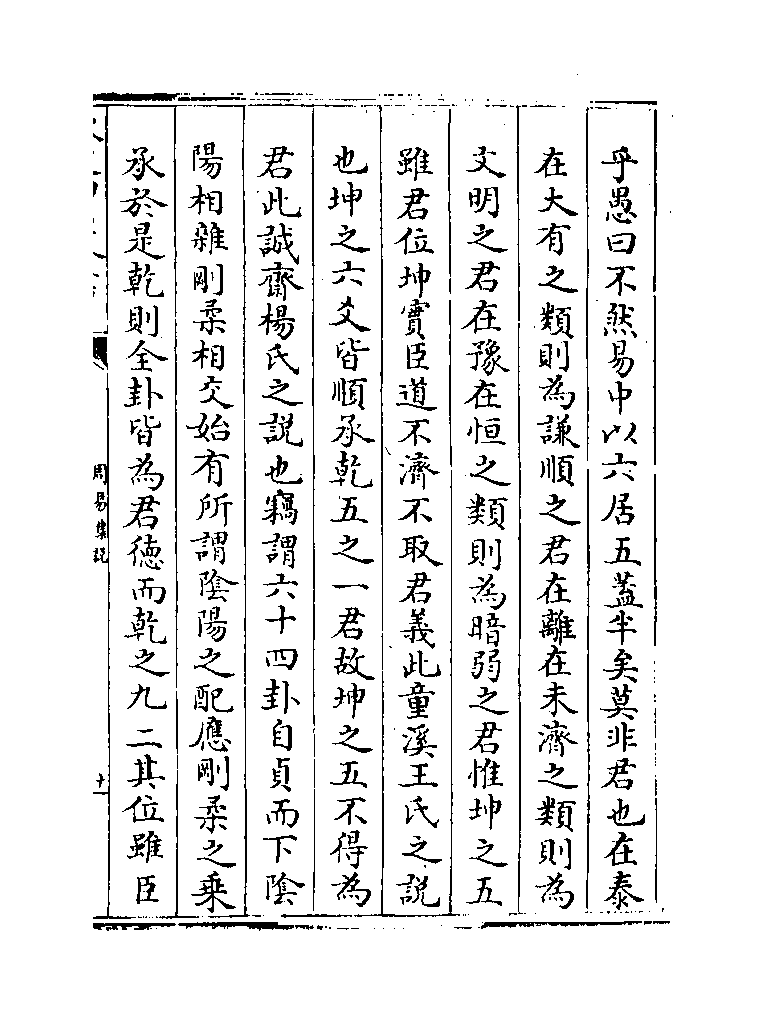 乎愚曰不然易中以六居五蓋半矣莫非君也在泰
在大有之類則為謙順之君在離在未濟之類則為
文明之君在豫在恒之類則為暗弱之君惟坤之五
雖君位坤實臣道不濟不取君義此童溪王氏之説
也坤之六爻皆順承乾五之一君故坤之五不得為
君此誠齋楊氏之説也竊謂六十四卦自貞而下陰
陽相雜剛柔相交始有所謂陰陽之配應剛柔之乗
承於是乾則全卦皆為君徳而乾之九二其位雖臣
周易集説
十一